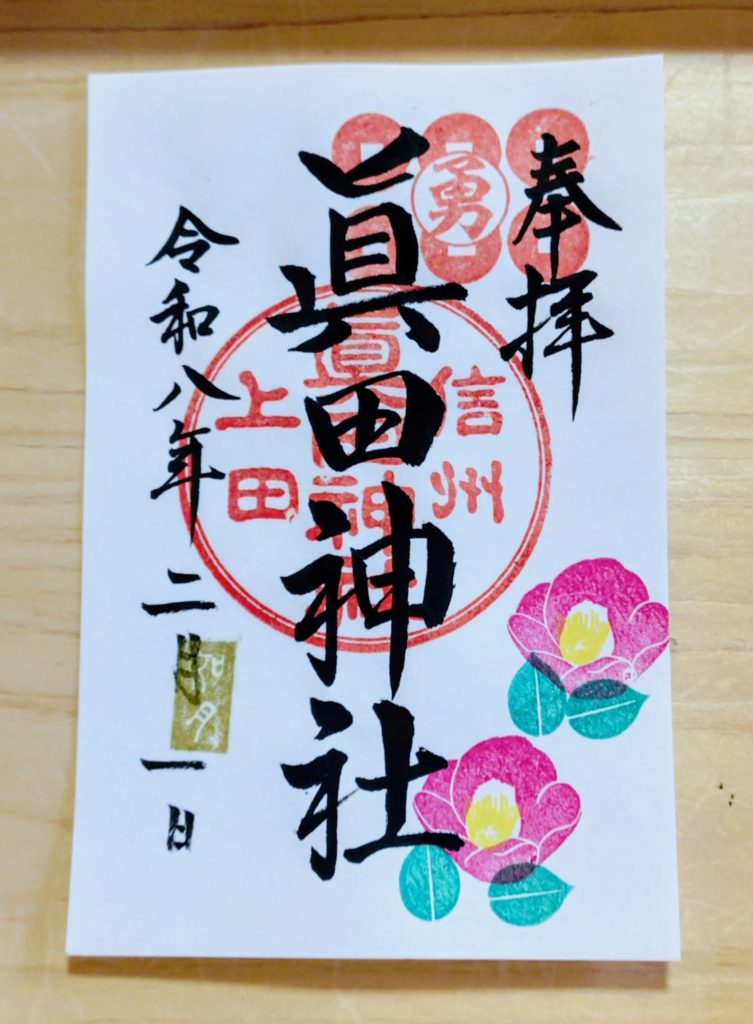 奉拝
勇
眞田神社
信州
眞田神社
上田
令和八年二月一日
如月